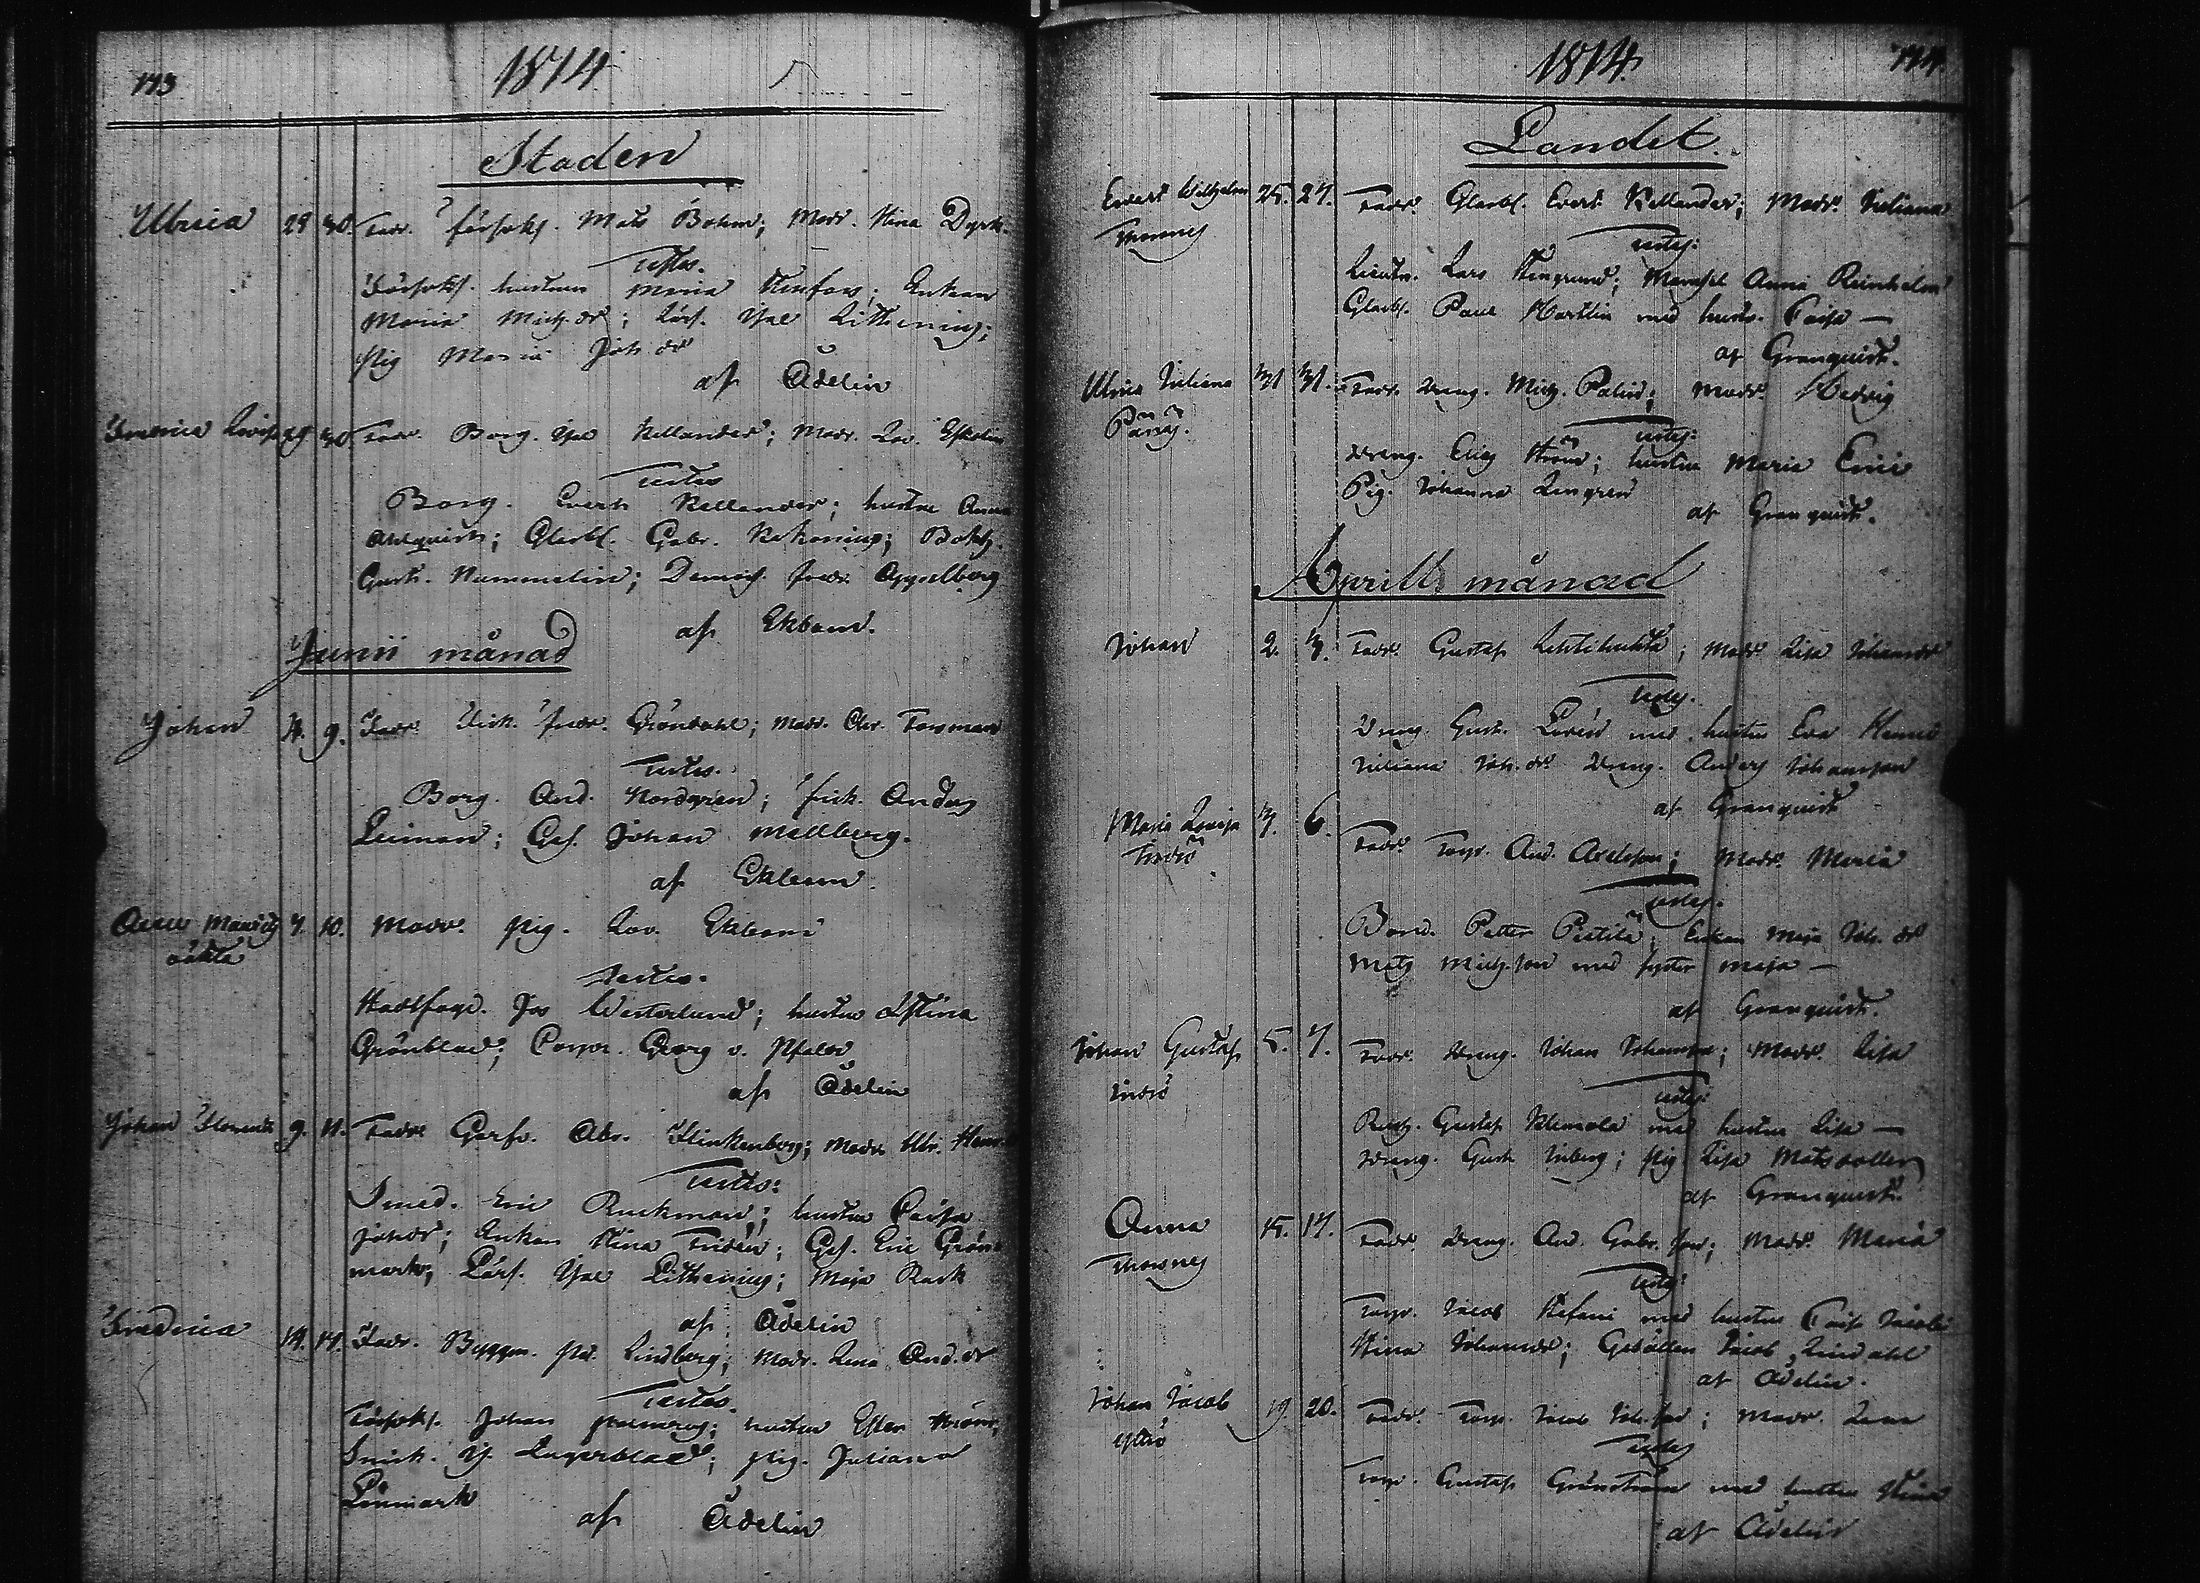 173
1814
Staden
Ulrica 29 30. Fadr. försoks. Mats Bohm; Modr. Stina Dyrk
Testes.
Försoks. hustrun Maria Stenfors; Enkan
Maria Mich.dr; Lärf. Isac Lithening;
pig Maria Joh.dr
af Ådelin
Fredrica Lovisa 29 30. Fadr Borg. Isac Kellander; Modr. Lov. Eskolin
Testes
Borg. Evert Kellander; hustru Anna
Ahlquist; Glasb. Gabr. Rekoning; Bokh.
Gust. Nummelin; Demois. Fredr. Appelberg
af Ekbom.
Junii månad
Johan 4. 9. Fadr Fisk. Fredr. Gröndahl; Modr. Chr. Forsman
Testes.
Borg. And. Nordgren; fisk. Anders
Leiman; Ges. Johan Mellberg.
af Ekbom.
7. 10. Modr. pig. Lov. Ekbom
oäkta
Testes.
Stadsfogd. Jos Westerlund; hustru Stina
Grönblad; Corpr. Georg v. Pfaler
af Ådelin
Johan 9. 11. Fadr Garfv. Abr. Klinkenberg; Modr Ulr.
Testes:
Smed. Eric Ruckman; hustru Caisa
Joh.dr; Enkan Stina Fridén; Ges. Eric Grön
mark; Lärf. Isac Lithening; Maja Rask
af Ådelin
Fredrica 14. 17. Fadr. Byggm. Pet. Lindberg; Modr. Lena And.dr
Testes.
Försoks. Johan; hustru Ester Ström;
Snick. Is. Lagerblad; pig. Juliana
Lönmark
af Ådelin
1814
174
Landet.
Evert Wilhelm 25. 27. Fadr. Glasb. Evert Kellander; Modr. Juliana
Thornnes
Testes:
Lieutn. Lars Stengrund; Mamsel Anna Reinholm
Glasb. Paul Hartlin med hustr. Caisa —
af Granquist.
Ulrica Juliana 31 31. Fadr. Dreng. Mich. Palin; Modr. Hedvig
Pänäs.
Testes:
Dreng. Elias Ström; hustru Maria
Pig. Johanna Lengren
af Granquist.
Aprills månad
Johan 2. 3. Fadr. Gustaf; Modr Lisa Johansdr
Testes.
Dreng. Gust. Levén med hustru Eva
Juliana Joh.dr Dreng. Anders Johansson
af Granquist
Maria Lovisa 3. 6. Fadr. Torp. And. Axelsson; Modr Maria
Testes.
Bond. Petter Pietilä; Enkan Maja Joh.dr
Mats Mich.son med syster Maja —
af Granquist.
Johan Gustaf 5. 7. Fadr. Dreng. Johan Johansson; Modr. Lisa
Testes:
Gustaf Klemola med hustru Lisa —
Dreng. Gust. Viberg; pig Lisa Matsdotter
af Granquist.
Anna 15. 17. Fadr. Dreng. And. Gabr.son; Modr. Maria
Thornnes
Testes:
Torp. Jacob Stefani med hustru Caisa
Stina Johansdr; Gesällen Jacob Lindahl
af Ådelin.
Johan Jacob 19. 20. Fadr. Torp. Jacob Joh.son; Modr. Lena
Testes
Torp. Gustaf Grönström med hustru Stina
af Ådelin